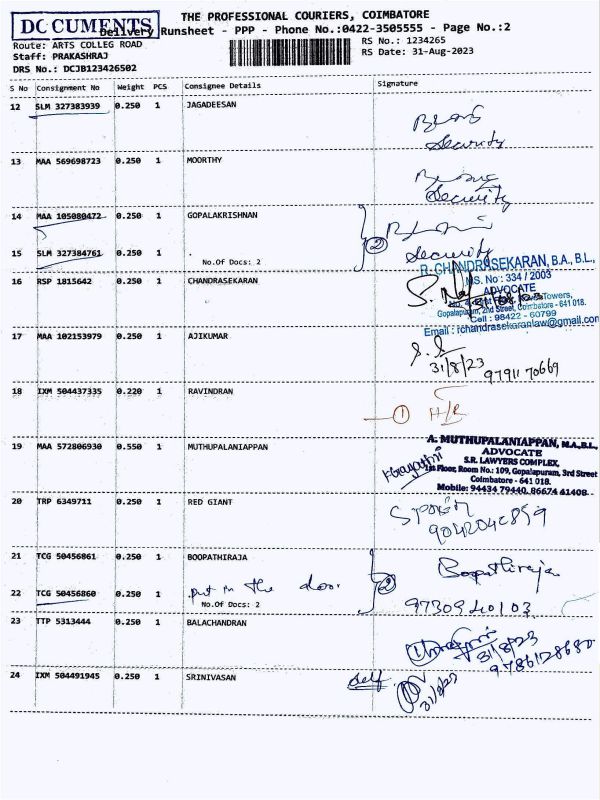 DOCUMENTS
THE PROFESSIONAL COURIERS, COIMBATORE
Delivery Runsheet - PPP - Phone No.:0422-3505555 - Page No.:2
Route: ARTS COLLEG ROAD
RS No.: 1234265
Staff: PRAKASHRAJ
RS Date: 31-Aug-2023
DRS No.: DCJB123426502
S No Consignment No Weight PCS Consignee Details Signature
12 SLM 327383939 0.250 1 JAGADEESAN
Security
13 MAA 569698723 0.250 1 MOORTHY
Security
14 MAA 105080472 0.250 1 GOPALAKRISHNAN
2
15 SLM 327384761 0.250 1 No.Of Docs: 2
Security
16 RSP 1815642 0.250 1 CHANDRASEKARAN
R. CHANDRASEKARAN, B.A., B.L.,
MS. No : 334 / 2003
ADVOCATE
Towers,
Gopalapuram, 2nd Street, Coimbatore - 641 018.
Cell : 98422 - 60799
Email : rchandrasekaranlaw@gmail.com
17 MAA 102153979 0.250 1 AJIKUMAR
31/8/23
9791170669
18 IXM 504437335 0.220 1 RAVINDRAN
1 H/R
19 MAA 572806930 0.550 1 MUTHUPALANIAPPAN
A. MUTHUPALANIAPPAN, M.A.,B.L.,
ADVOCATE
S.R. LAWYERS COMPLEX,
1st Floor, Room No.: 109, Gopalapuram, 3rd Street
Coimbatore - 641 018.
Mobile: 94434 79440, 86674 41408
20 TRP 6349711 0.250 1 RED GIANT
21 TCG 50456861 0.250 1 BOOPATHIRAJA
Boopathiraja
22 TCG 50456860 0.250 1 put in the door
2
No.Of Docs: 2
9730940103
23 TTP 5313444 0.250 1 BALACHANDRAN
31/8/23
9786128680
24 IXM 504491945 0.250 1 SRINIVASAN
self
31/8/23